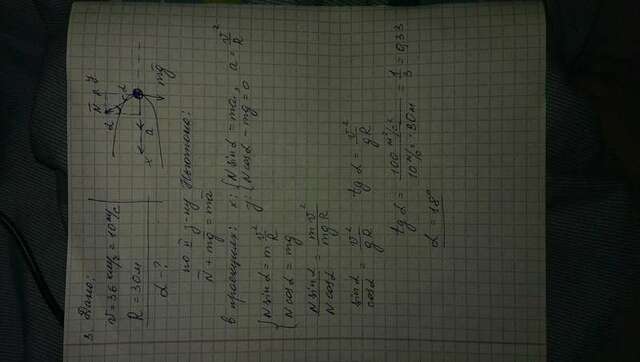 3. Дано:
v = 36 км/ч = 10 м/с
R = 30 м
α - ?
N y
α
x a mg
по II з-ну Ньютона:
N + mg = ma
в проекциях: x: { N sin α = ma, a = v²/R
y: { N cos α - mg = 0
{ N sin α = m v²/R
N cos α = mg
N sin α / N cos α = m v² / mg R
sin α / cos α = v² / gR tg α = v² / gR
tg α = 100 м²/с² / 10 м/с² · 30 м = 1/3 = 0,33
α = 18°